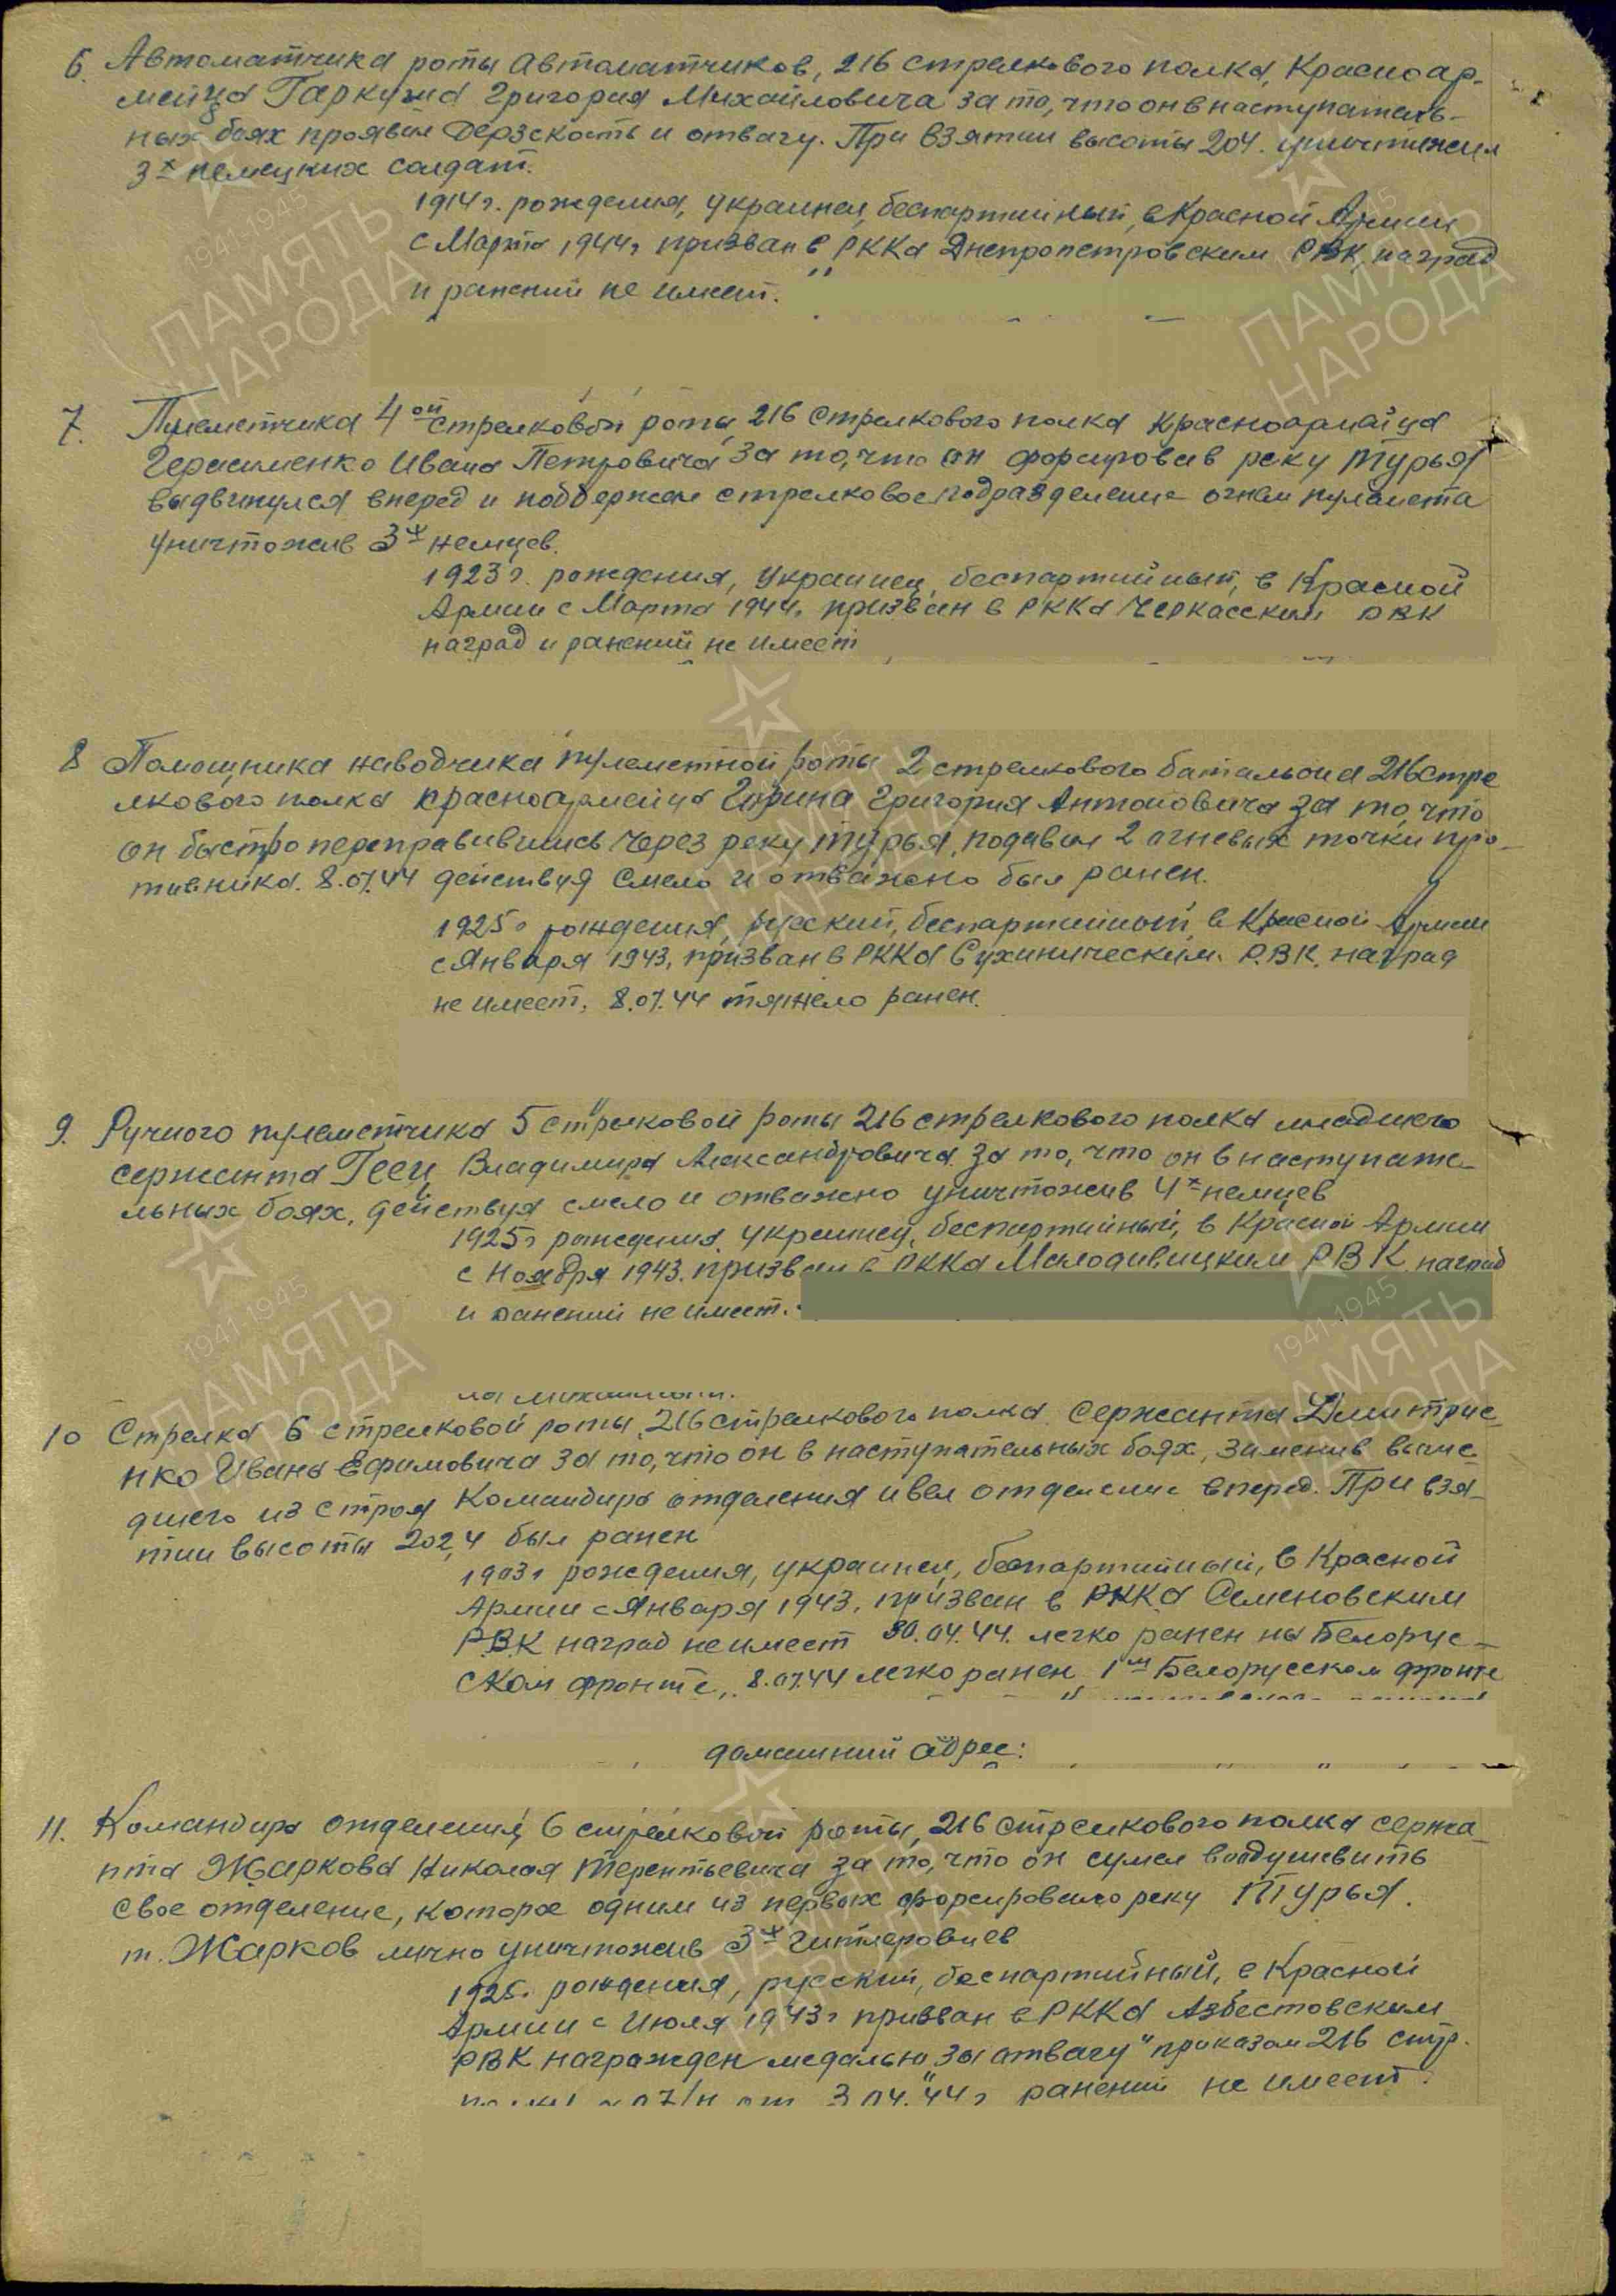 6. Автоматчика роты автоматчиков, 216 стрелкового полка, Красноар-
мейца Гаркуша Григория Михайловича за то, что он в наступатель-
ных боях проявил дерзость и отвагу. При взятии высоты 204. уничтожил
3х немецких солдат.
1914 г. рождения, украинец, беспартийный, в Красной Армии
с Марта 1944 г. призван в РККА Днепропетровским РВК, наград
и ранений не имеет.
7. Пулеметчика 4ой стрелковой роты, 216 стрелкового полка красноармейца
Герасименко Ивана Петровича за то, что он форсировав реку Турья
выдвинулся вперед и поддержал стрелковое подразделение огнем пулемета
уничтожив 3х немцев.
1923 г. рождения, украинец, беспартийный, в Красной
Армии с Марта 1944. призван в РККА Черкасским РВК
наград и ранений не имеет
8 Помощника наводчика пулеметной роты 2 стрелкового батальона 216 стре
лкового полка красноармейца Горина Григория Антоновича за то, что
он быстро переправившись через реку Турья, подавил 2 огневых точки про-
тивника. 8.07.44 действуя смело и отважно был ранен.
1925 г рождения, русский, беспартийный, в Красной Армии
с Января 1943, призван в РККА Сухиническим. Р.В.К. наград
не имеет, 8.07.44 тяжело ранен.
9. Ручного пулеметчика 5 стрелковой роты 216 стрелкового полка младшего
сержанта Геец Владимира Александровича за то, что он в наступате-
льных боях, действуя смело и отважно уничтожив 4х немцев
1925 г рождения, украинец, беспартийный, в Красной Армии
с Ноября 1943. призван в РККА РВК наград
и ранений не имеет.
10 Стрелка 6 стрелковой роты, 216 стрелкового полка сержанта Дмитрие-
нко Ивана Ефимовича за то, что он в наступательных боях, заменив выше-
дшего из строя Командира отделения и вел отделение вперед. При взя-
тии высоты 202,4 был ранен
1903 г рождения, украинец, беспартийный, в Красной
Армии с Января 1943, призван в РККА Семеновским
Р.В.К наград не имеет 30.04.44. легко ранен на Белорус-
ском фронте, 8.07.44 легко ранен 1м Белорусском фронте
домашний адрес:
11. Командира отделения, 6 стрелковой роты, 216 стрелкового полка сержа-
нта Жаркова Николая Терентьевича за то, что он сумел воодушевить
свое отделение, которое одним из первых форсировало реку Турья.
т. Жарков лично уничтожив 3х гитлеровцев
1925. рождения, русский, беспартийный, в Красной
Армии с Июля 1943 г призван в РККА Азбестовским
РВК награжден медалью "За отвагу" приказом 216 стр.
полка от 3.04.44 г ранений не имеет.
ПАМЯТЬ
НАРОДА
1941-1945